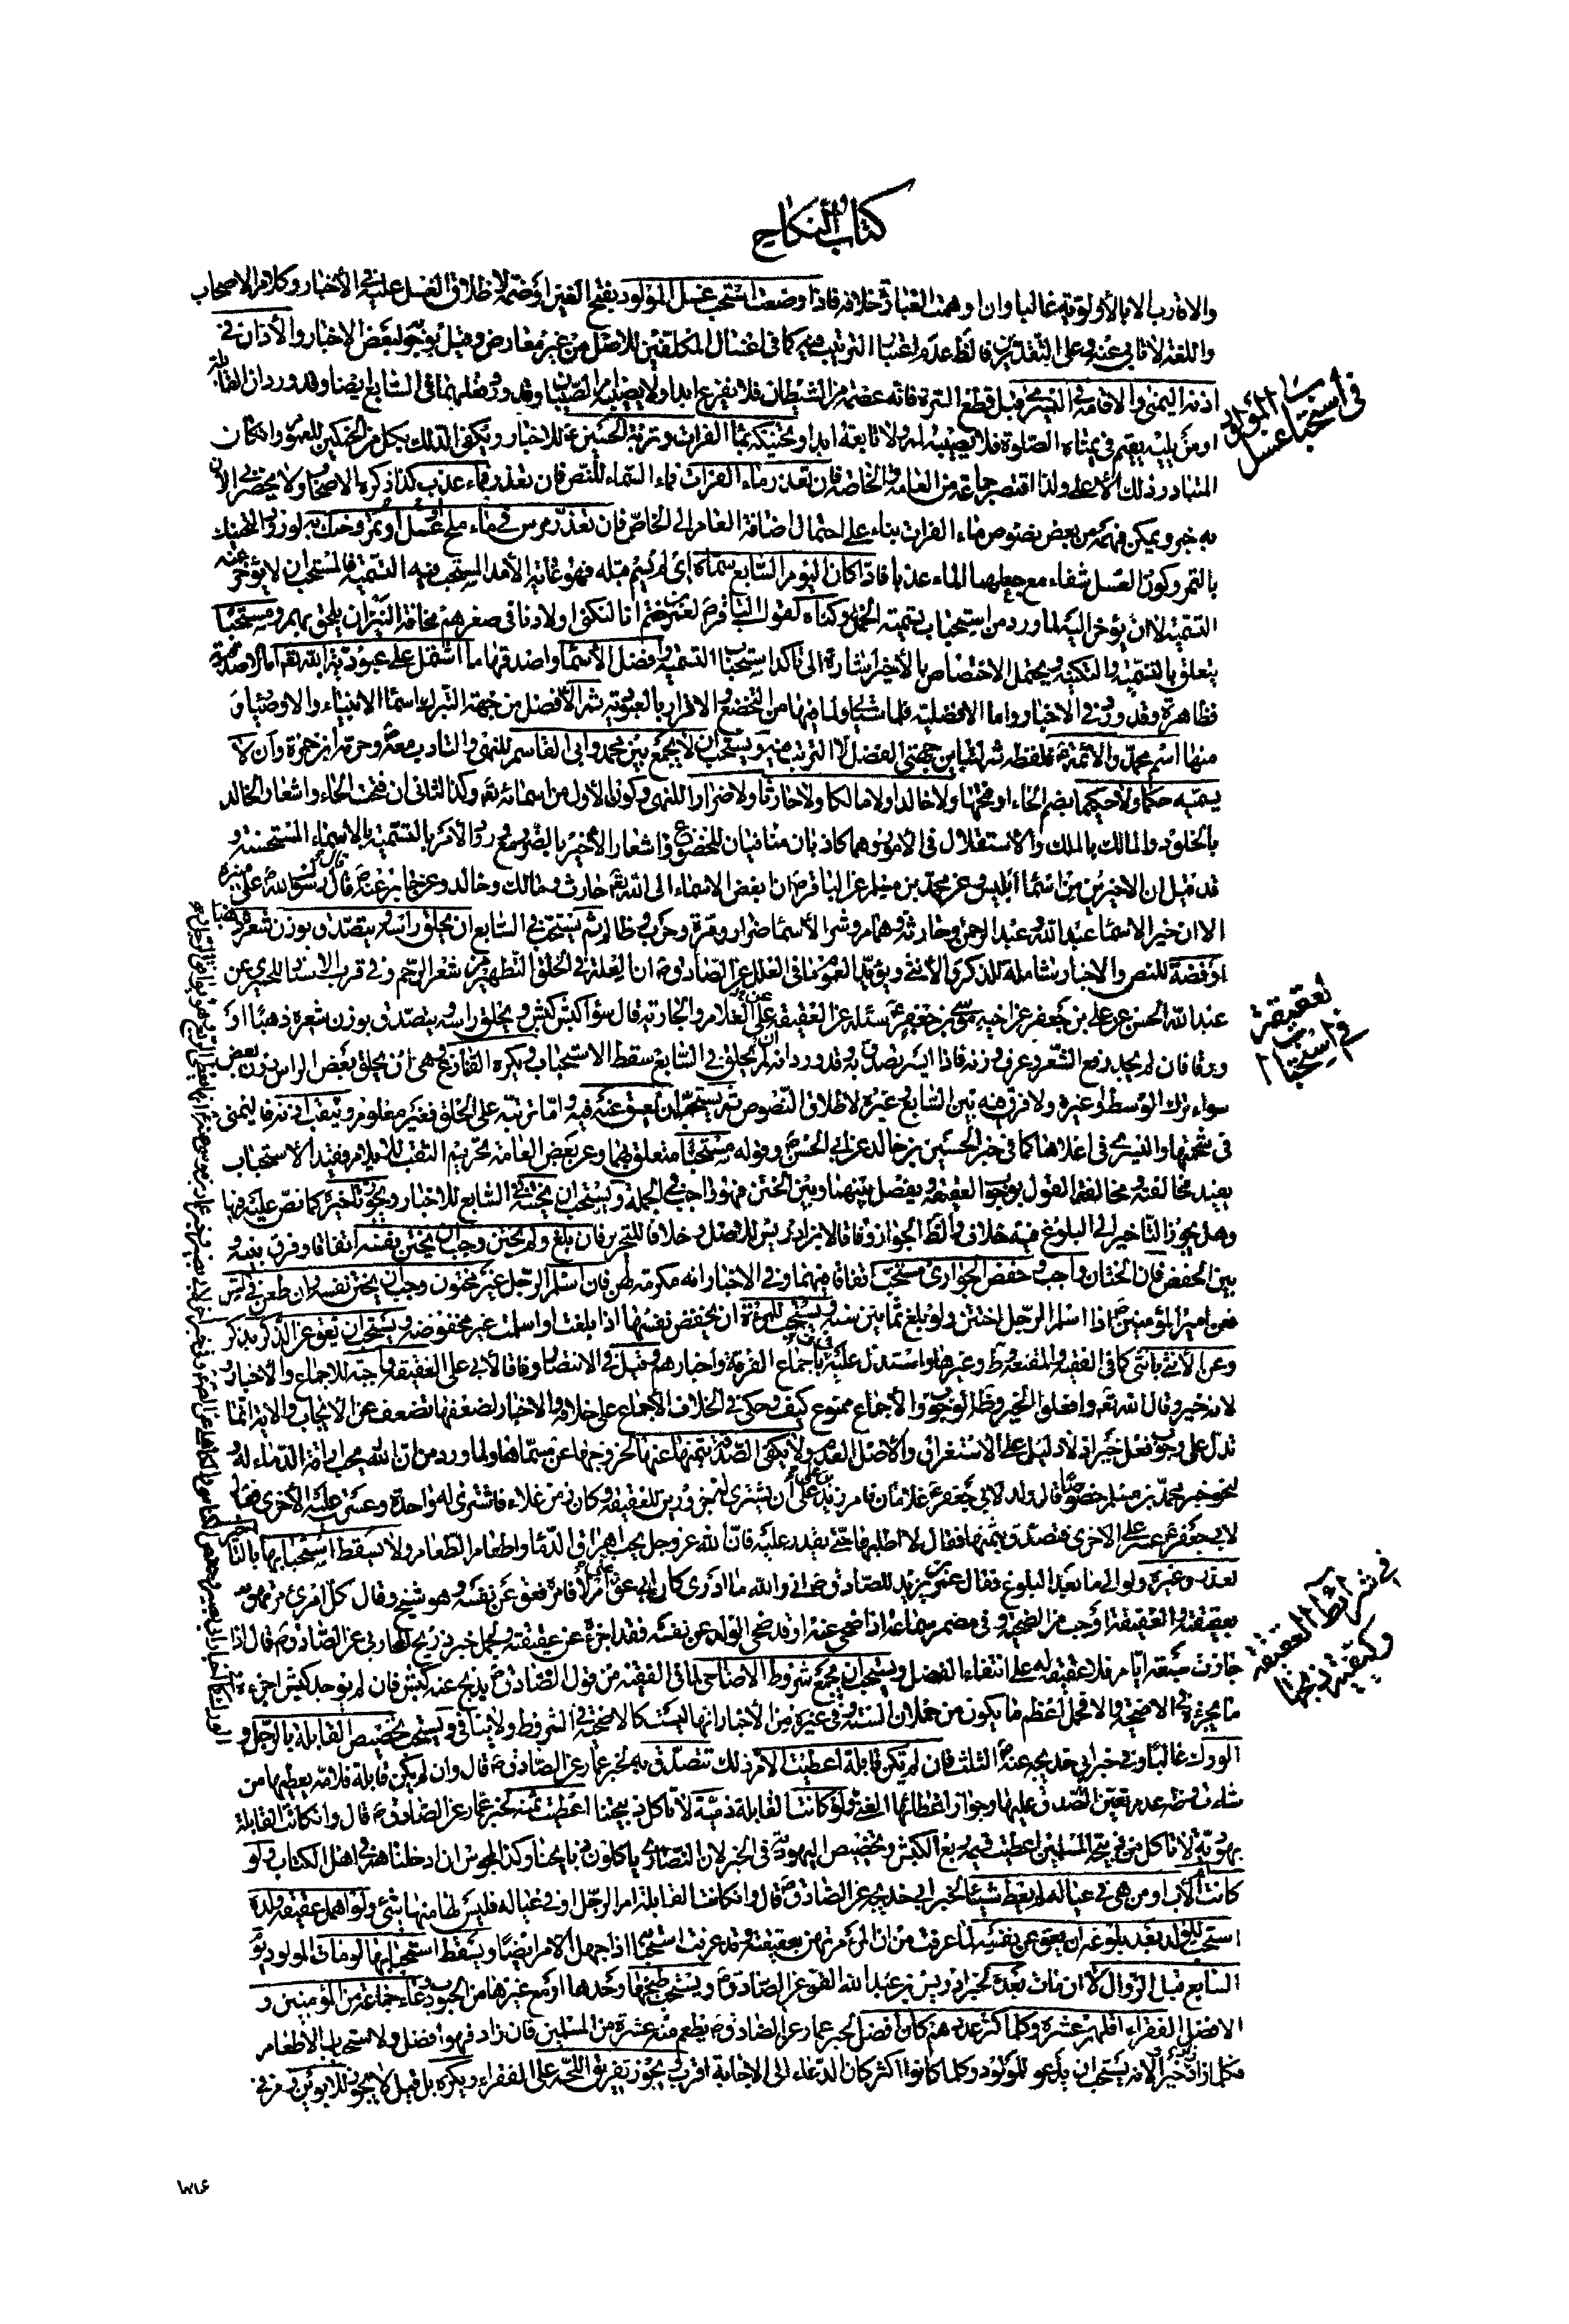 كتاب النكاح
والاقارب الا بالأولوية غالبا وان اوهمت العبارة خلافه فاذا وضعت استحب غسل المولود بفتح الغين او ضمه لاطلاق الغسل عليه في الأخبار وكلام الاصحاب
واللغة لا تابى عنه وعلى التقديرين فالظ عدم اعتبار الترتيب فيه كما في اغتسال المكلفين للاصل من غير معارض وقيل بوجوبه لبعض الاخبار والأذان في
اذنه اليمنى والاقامة في اليسرى قبل قطع السرة فانه عصمة من الشيطان فلا يفزع ابدا ولا يصيبه ام الصبيان وقد ورد فعلهما في السابع ايضا وقد ورد ان القابلة
او من يليه يقيم في يمناه الصلوة فلا يصيبه لمم ولا تابعة ابدا وتحنيكه بماء الفرات وتربة الحسين ع للاخبار ويكفي الدلك بكل من الحنكين للعموم وان كان
المتبادر ذلك الأعلى ولذا اقتصر جماعة من العامة والخاصة فان تعذر ماء الفرات فماء السماء للنص فان تعذر فماء عذب كذا ذكره الاصحاب ولا يحضرني الآن
به خبر ويمكن فهمه من بعض نصوص ماء الفرات بناء على احتمال اضافة العام الى الخاص فان تعذر مرس في ماء ملح عسل او تمر وحنك به لورود التحنيك
بالتمر وكون العسل شفاء مع جعلهما الماء عذبا فاذا كان اليوم السابع سماه اى لم يسم قبله فهو غاية الأمد المستحب فيه التسمية فالمستحب ان لا يؤخر عنه
التسمية لا ان يؤخر اليه لما ورد من استحباب تسمية الحمل وكناه لقول الباقر ع لمعمر بن خثيم انا لنكني اولادنا في صغرهم مخافة النبز ان يلحق بهم ومستحبا
يتعلق بالتسمية والتكنية ويحتمل الاختصاص بالأخير اشارة الى تاكد استحباب التسمية وافضل الأسماء واصدقها ما اشتمل على عبودية الله تعم اما الاصدقية
فظاهرة وقد ورد في الاخبار واما الافضلية فلما سياتي ولما فيها من التخضع والاقرار بالعبودية ثم الأفضل من جهة التبرك اسماء الانبياء والاوصياء و
منها اسم محمد والائمة ع فلفظة ثم لتباين جهتي الفضل لا الترتيب فيه ويستحب ان لا يجمع بين محمد وابي القاسم للنهي والتادب معه ص وحرمه ابن حمزة وان لا
يسميه حكما ولا حكيما بضم الحاء او فتحها ولا خالدا ولا مالكا ولا حارثا ولا ضرارا للنهي وكون الأول من اسمائه تعم وكذا الثاني ان فتحت الحاء واشعار الخالد
بالخلود والمالك بالملك والاستقلال في الأمور وهما كاذبان منافيان للخضوع واشعار الأخير بالضرر مع ورود الأمر بالتسمية بالاسماء المستحسنة و
قد قيل ان الاخيرين من اسماء ابليس وعن محمد بن مسلم عن الباقر ع ان ابغض الاسماء الى الله تعم حارث ومالك وخالد وعن جابر عنه ع قال قال رسول الله ص على منبره
الا ان خير الاسماء عبد الله وعبد الرحمن وحارثة وهمام وشر الأسماء ضرار ومرة وحرب وظالم ثم يستحب في السابع ان يحلق راسه ويتصدق بوزن شعره ذهبا
او فضة للنص والاخبار شاملة للذكر والأنثى ويؤيد العموم ما في العلل عن الصادق ع ان العلة في الحلق التطهير من شعر الرحم وفي قرب الاسناد للحميري عن
عبد الله بن الحسن عن علي بن جعفر عن اخيه موسى بن جعفر ع سئله عن العقيقة عن الغلام والجارية قال سواء كبش كبش ويحلق راسه ويتصدق بوزن شعره ذهبا او
ورقا فان لم يجد رفع الشعر وعرف وزنه فاذا ايسر تصدق به وقد ورد انه ان لم يحلق في السابع سقط الاستحباب ويكره القنازع وهي ان يحلق بعض الراس دون بعض
سواء ترك الوسط او غيره ولا فرق فيه بين السابع وغيره لاطلاق النصوص ثم يستحب ان يعق عنه فيه واما ترتبه على الحلق فغير معلوم ويثقب اذنه فاليمنى
في شحمتها واليسرى في اعلاها كما في خبر الحسين بن خالد عن ابي الحسن ع وقوله مستحبا متعلق بهما وعن بعض العامة تحريم الثقب للايلام وقيد الاستحباب
يفيد مخالفته ومخالفة القول بوجوب العقيقة ويفصل بينهما وبين الختن فهو واجب في الجملة ويستحب ان يختنه في السابع للاخبار ويجوز تاخيره كما نص عليه فيها
وهل يجوز التاخير الى البلوغ فيه خلاف والظ الجواز وفاقا لابن ادريس للاصل وخلافا للتحرير فان بلغ ولم يختن وجب ان يختن نفسه اتفاقا وفرق بينه و
بين الخفض فان الختان واجب وخفض الجواري مستحب اتفاقا فيهما وفي الاخبار انه مكرمة لهن فان اسلم الرجل غير مختون وجب ان يختن نفسه وان طعن في السن
فعن امير المؤمنين ع اذا اسلم الرجل اختتن ولو بلغ ثمانين سنة ويستحب للمرءة ان تخفض نفسها اذا بلغت او اسلمت غير مخفوضة ويستحب ان يعق عن الذكر بذكر
وعن الأنثى بانثى كما في الفقيه والمقنعة وط وغيرها واستدل عليه باجماع الفرقة واخبارهم وقيل في الانتصار وفاقا لابي علي العقيقة واجبة للاجماع والأخبار و
لانه خير وقال الله تعم وافعلوا الخير وظ الوجوب والأجماع ممنوع كيف وحكى في الخلاف الأجماع على خلافه والاخبار لضعفها تضعف عن الأيجاب والاية انما
تدل على وجوب فعل خير اذ لا دليل على الاستغراق والأصل العدم ولا يكفي الصدقة بثمنها عنها لخروجها عن مسماها ولما ورد من ان الله يحب اراقة الدماء له و
لخبر محمد بن مسلم خصوصا قال ولد لابي جعفر ع غلامان فامر زيد بن علي ان يشتري له جزورين للعقيقة وكان زمن غلاء فاشترى له واحدة وعسرت عليه الأخرى فقال
لابي جعفر ع عسرت علي الاخرى فتصدق بثمنها فقال لا اطلبها حتى تقدر عليه فان الله عز وجل يحب اهراق الدماء واطعام الطعام ولا يسقط استحبابها بالتاخير
لعذر وغيره ولو الى ما بعد البلوغ فقال عمر بن يزيد للصادق ع اني والله ما ادري كان ابي عق عني ام لا فامره فعق عن نفسه وهو شيخ وقال كل امرئ مرتهن
بعقيقته والعقيقة اوجب من الضحية وفي مضمر سماعة اذا ضحي عنه او قد ضحى الولد عن نفسه فقد اجزء عن عقيقته ويحمل خبر ذريح المحاربي عن الصادق ع قال اذا
جازت سبعة ايام فلا عقيقة له على انتفاء الفضل ويستحب ان يجمع شروط الاضاحي لما في الفقيه من قول الصادق ع يذبح عنه كبش فان لم يوجد كبش اجزءه
ما يجزء في الاضحية والا فحمل اعظم ما يكون من حملان السنة وفي غيره من الأخبار انها ليست كالاضحية في الشروط ولا ينافي ويستحب تخصيص القابلة بالرجل و
الورك غالبا وفي خبر ابي خديجة عنه ع الثلث فان لم تكن قابلة اعطيت الأم ذلك تتصدق به لخبر عمار عن الصادق ع قال وان لم يكن قابلة فلامه يعطيها من
شاءت وظ عدم تعين التصدق عليها وجواز اعطائها الغني ولو كانت القابلة ذمية لا تاكل ذبيحتنا اعطيت ثمنه لخبر عمار عن الصادق ع قال وان كانت القابلة
يهودية لا تاكل من ذبيحة المسلمين اعطيت قيمة ربع الكبش وتخصيص اليهودية في الخبر لان النصارى ياكلون ذبايحنا وكذا المجوس ان ادخلناهم في اهل الكتاب ولو
كانت ام الأب او من هي في عياله لم يعط شيئا لخبر ابي خديجة عن الصادق ع قال وان كانت القابلة ام الرجل او في عياله فليس لها منها شئ ولو اهمل عقيقة ولده
استحب للولد بعد بلوغه ان يعق عن نفسه لما عرفت من ان المرء مرتهن بعقيقته وقد عرفت استحبابها اذا جهل الامر ايضا ويسقط استحبابها لو مات المولود يوم
السابع قبل الزوال لا ان مات بعده لخبر ادريس بن عبد الله القمي عن الصادق ع ويستحب طبخها وحدها او مع غيرها من الحبوب ودعاء جماعة من المؤمنين و
الافضل الفقراء اقلهم عشرة وكلما كثر عددهم كان افضل لخبر عمار عن الصادق ع يطعم منه عشرة من المسلمين فان زاد فهو افضل ولاستحباب الاطعام
فكلما زاد زاد خيرا ولانه يستحب ان يدعو للمولود وكلما كانوا اكثر كان الدعاء الى الاجابة اقرب ويجوز تفريق اللحم على الفقراء ويكره بل قيل لا يجوز للابوين ومن في
في استحباب غسل المولود
في استحباب العقيقة
في شرائط العقيقة وكيفية ذبحها